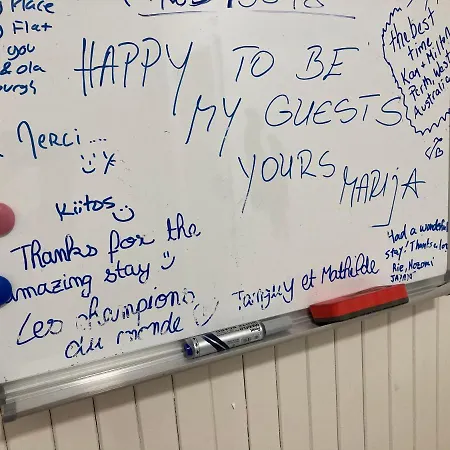 Place
Flat
you
& ola
HAPPY TO BE
MY GUESTS
YOURS
MARIJA
the best
time
Kay + Millen
Perth, West
Australia
Merci....
Kiitos
Thanks for the
amazing stay
Les champions
du monde
Tanguy et Mathilde
Had a wonderful
stay! Thanks a lot
Rie, Nozomi
JAPAN